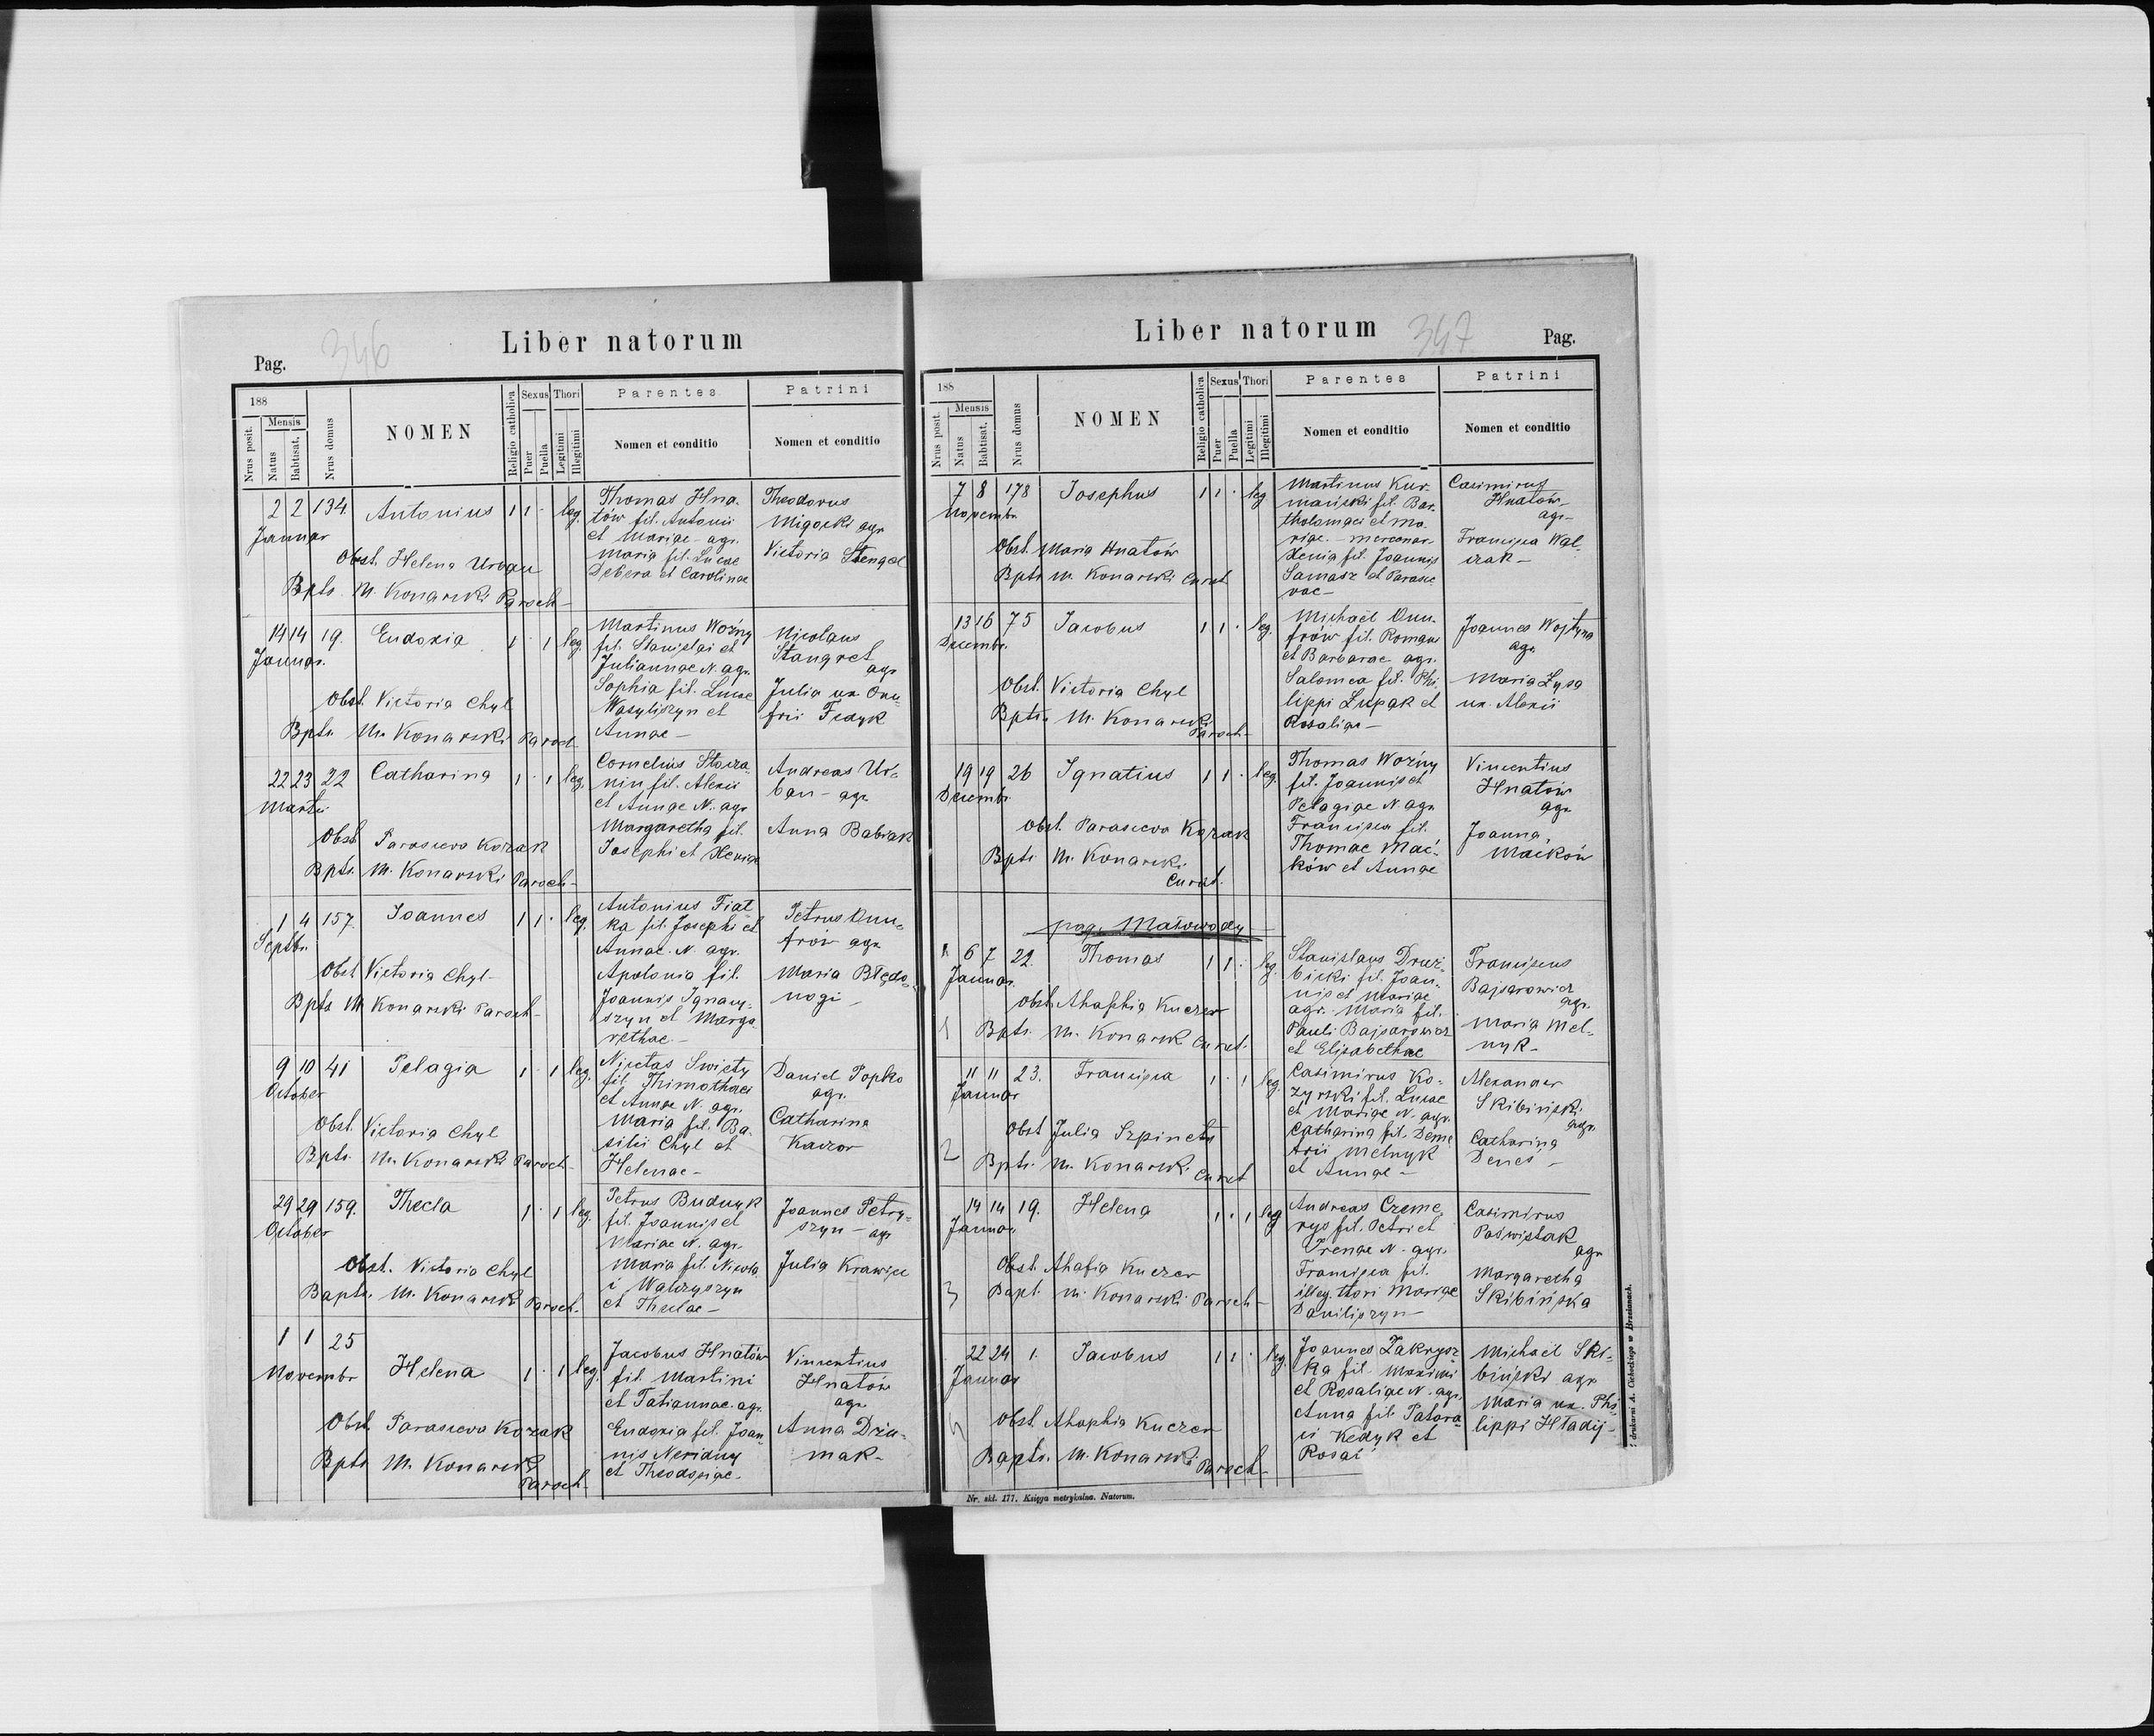 346
Liber natorum
Pag.
188
Nrus posit.
Mensis
Natus
Babtisat.
Nrus domus
NOMEN
Religio catholica
Sexus
Puer
Puella
Thori
Legitimi
Illegitimi
Parentes
Nomen et conditio
Patrini
Nomen et conditio
2 2 134 Antonius 1 1 · leg.
Januar
Obst. Helena Urban
Bpts. M. Konarski Paroch-
Thomas Hna-
tów fil. Antonii
et Mariae agr.
Maria fil. Lucae
Debera et Carolinae
Theodorus
Migocki agr
Victoria Stengel
14 14 19. Eudoxia 1 · 1 leg.
Januar.
Obst. Victoria Chyl
Bpts. M. Konarski Paroch
Martinus Woźny
fil. Stanislai et
Juliannae N. agr.
Sophia fil. Lucae
Wasyliszyn et
Annae-
Nicolaus
Stangret
agr
Julia ux. Onu-
frii Fedyk
22 23 22 Catharina 1 · 1 leg.
Martii
Obst Parasceva Kozak
Bpts. M. Konarski Paroch-
Cornelius
nin fil. Alexii
et Annae N. agr
Margaretha fil.
Josephi et Xeniae
Andreas Ur-
ban - agr
Anna Babiak
1 4 157. Joannes 1 1 · leg.
Septbr.
Obst Victoria Chyl-
Bpts M Konarski Paroch-
Antonius Fiał
ka fil. Josephi et
Annae N. agr.
Apolonia fil.
Joannis Ignacy-
szyn et Marga
rethae.-
Petrus Onu-
frów agr
Maria Błędo-
nogi -
9 10 41 Pelagia 1 · 1 leg.
October
Obst Victoria Chyl
Bpts. M. Konarski Paroch-
Nicetas Swięty
fil. Thimothaei
et Annae N. agr.
Maria fil. Ba-
silii Chyl et
Helenae-
Daniel Popko
agr.
Catharina
Kaczor
29 29 159. Thecla 1 · 1 leg.
October
Obst. Victoria Chyl
Bapts. M. Konarski Paroch.
Petrus Budnyk
fil. Joannis et
Mariae N. agr.
Maria fil. Nicola
i Walczyszyn
et Theclae-
Joannes Petry-
szyn - agr
Julia Krawiec
1 1 25
Novembr Helena 1 · 1 leg.
Obst. Parasceva Kozak
Bpts M. Konarski
Paroch-
Jacobus Hnatów
fil. Martini
et Tatiannae agr.
Eudoxia fil. Joan-
nis Neridny
et Theodosiae.
Vincentius
Hnatów
agr.
Anna Dziu-
mak-
Liber natorum
347
Pag.
188
Nrus posit.
Mensis
Natus
Babtisat.
Nrus domus
NOMEN
Religio catholica
Sexus
Puer
Puella
Thori
Legitimi
Illegitimi
Parentes
Nomen et conditio
Patrini
Nomen et conditio
7 8 178 Josephus 1 1 · leg
Novembr.
Obst. Maria Hnatów
Bpts M. Konarski Curat
Martinus Kur-
mański fil. Bar-
tholomaei et Ma-
riae - mercenar.
Xenia fil. Joannis
Samasz et Parasce
vae-
Casimirus
Hnatów
agr-
Francisca Wal-
czak-
13 16 75 Jacobus 1 1 · leg.
Decembr.
Obst. Victoria Chyl
Bpts. M. Konarski
Paroch-
Michaël Onu-
frów fil. Romani
et Barbarae agr.
Salomea fil. Phi
lippi Łupak et
Rosaliae-
Joannes Wojtyna
agr.
Maria Łysa
ux. Alexii
19 19 26 Ignatius 1 1 · leg.
Decembr.
Obst. Parasceva Kozak
Bpts M. Konarski
Curat.
Thomas Woźny
fil. Joannis et
Pelagiae N agr.
Francisca fil.
Thomae Mać-
ków et Annae
Vincentius
Hnatów
agr
Joanna
Maćków
pag. Małowody
1 6 7 22. Thomas 1 1 · leg.
Januar
Obst. Ahaphia Kuczer
1 Bpts. M. Konarsk Curat.
Stanislaus Druż-
bicki fil. Joan-
nis et Mariae
agr. Maria fil.
Pauli Bajsarowicz
et Elisabethae
Franciscus
Bajsarowicz
agr.
Maria Mel-
nyk-
11 11 23. Francisca 1 · 1 leg.
Januar
Obst Julia Szpineta
2 Bpts. M. Konarski Curat
Casimirus Ko-
zyrski fil. Lucae
et Mariae N. agr.
Catharina fil. Deme
trii Melnyk
et Annae-
Alexander
Skibiński
agr.
Catharina
Deneś -
14 14 19. Helena 1 · 1 leg
Januar.
Obst Ahafia Kuczer
3 Bapt. M. Konarski Paroch-
Andreas Czeme-
rys fil. Petri et
Irenae N. agr.
Francisca fil.
illeg. thori Mariae
Daniliszyn-
Casimirus
Paświstak
agr
Margaretha
Skibińska
22 24 1. Jacobus 1 1 · leg.
Januar
Obst. Ahaphia Kuczer
Bapts. M. Konarski Paroch-
Joannes Zakrysz
ka fil. Maximi
et Rosaliae N. agr.
Anna fil.
Kedyk et
Rosal
Michaël Ski-
biński agr
Maria ux. Phi-
lippi Hładij-
Nr. skł. 177. Księga metrykalna. Natorum.
Z drukarni A. Cichockiego w Brzeżanach.